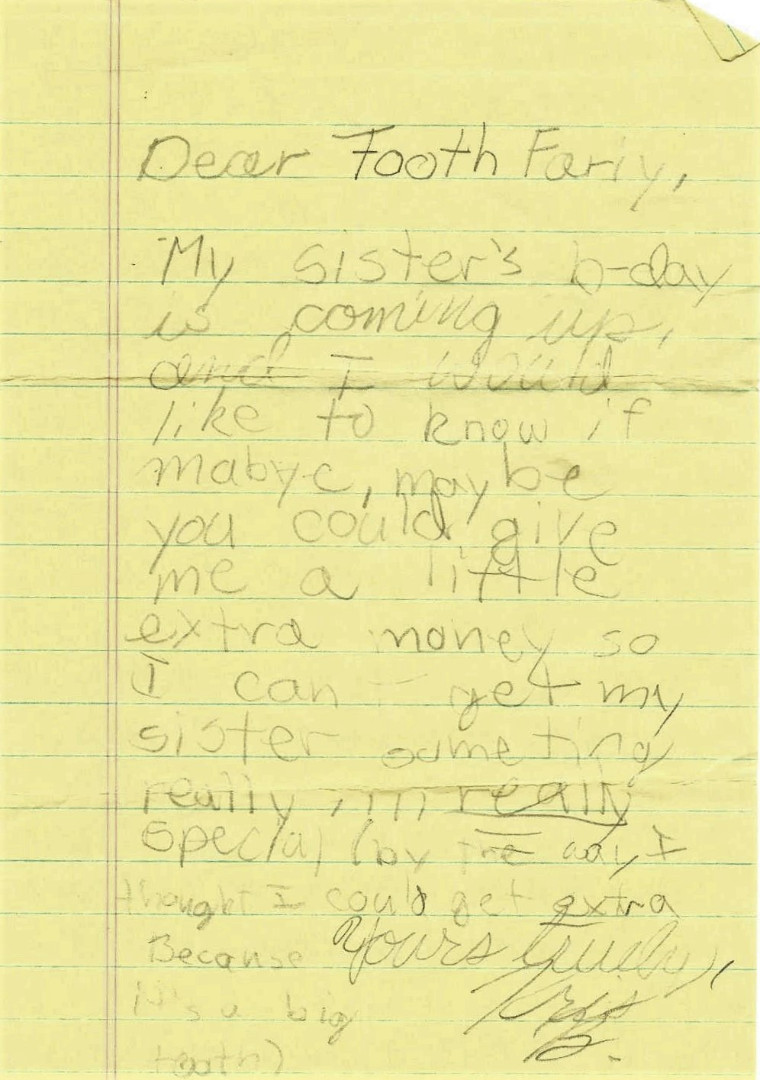 Dear Tooth Fariy,
My sister's b-day
is coming up,
and I would
like to know if
mabye, maybe
you could give
me a little
extra money so
I can get my
sister someting
really, really
special (by the way I
thought I could get extra
Because
it's a big
tooth)
Yours truely,